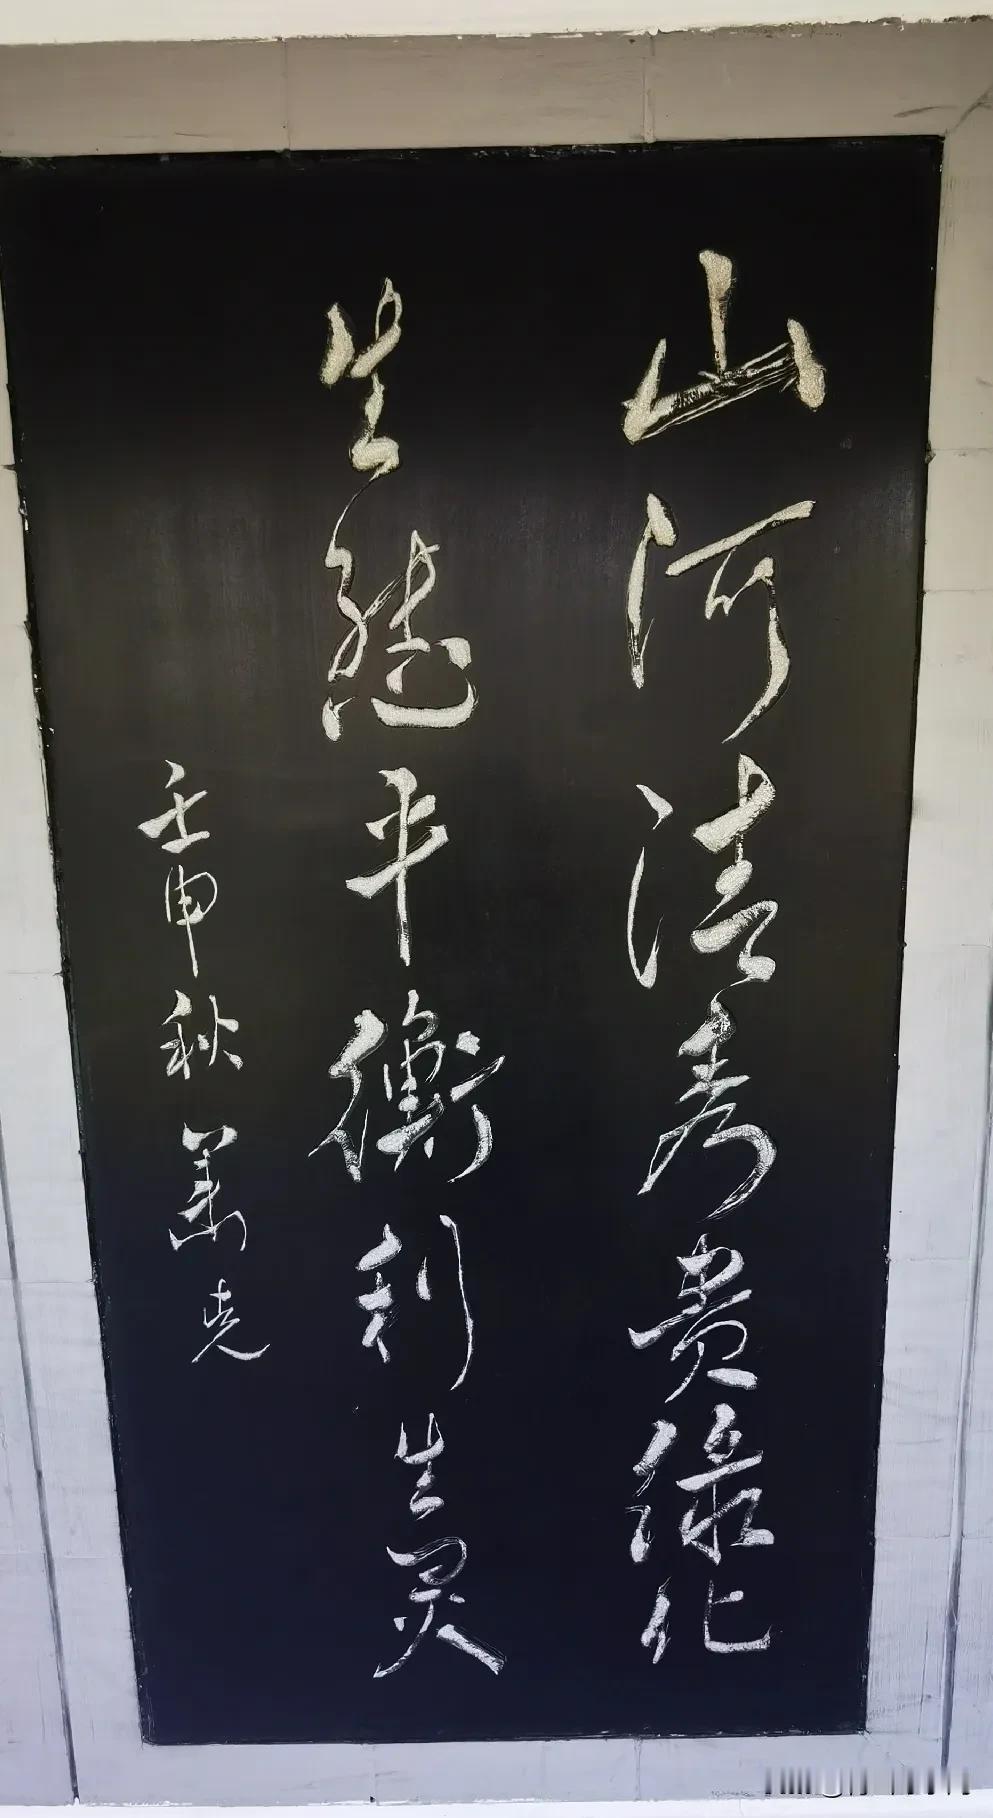 山河清秀贵绿化
生态平衡利生灵
壬申秋 萧克